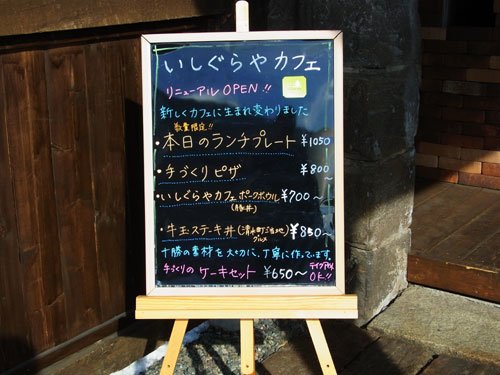 いしぐらやカフェ
リニューアルOPEN!!
新しくカフェに生まれ変わりました
数量限定!!
・本日のランチプレート ¥1050
・手づくりピザ ¥800〜
・いしぐらやカフェポークボウル ¥700〜
(豚丼)
・牛玉ステーキ丼(清水町ご当地グルメ) ¥850〜
十勝の素材を大切に、丁寧に作っています。
手づくりのケーキセット ¥650〜 テイクアウトOK!!